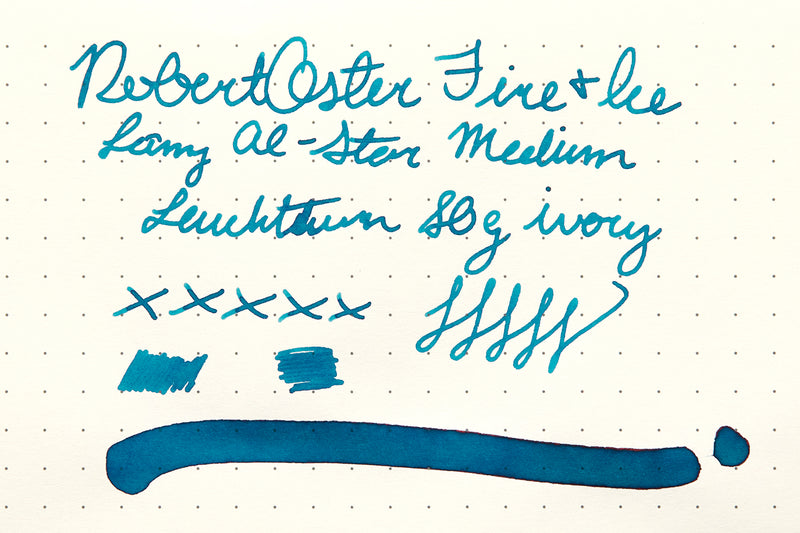 Robert Oster Fire & Ice
Lamy Al-Star Medium
Leuchtturm 80g ivory
x x x x x